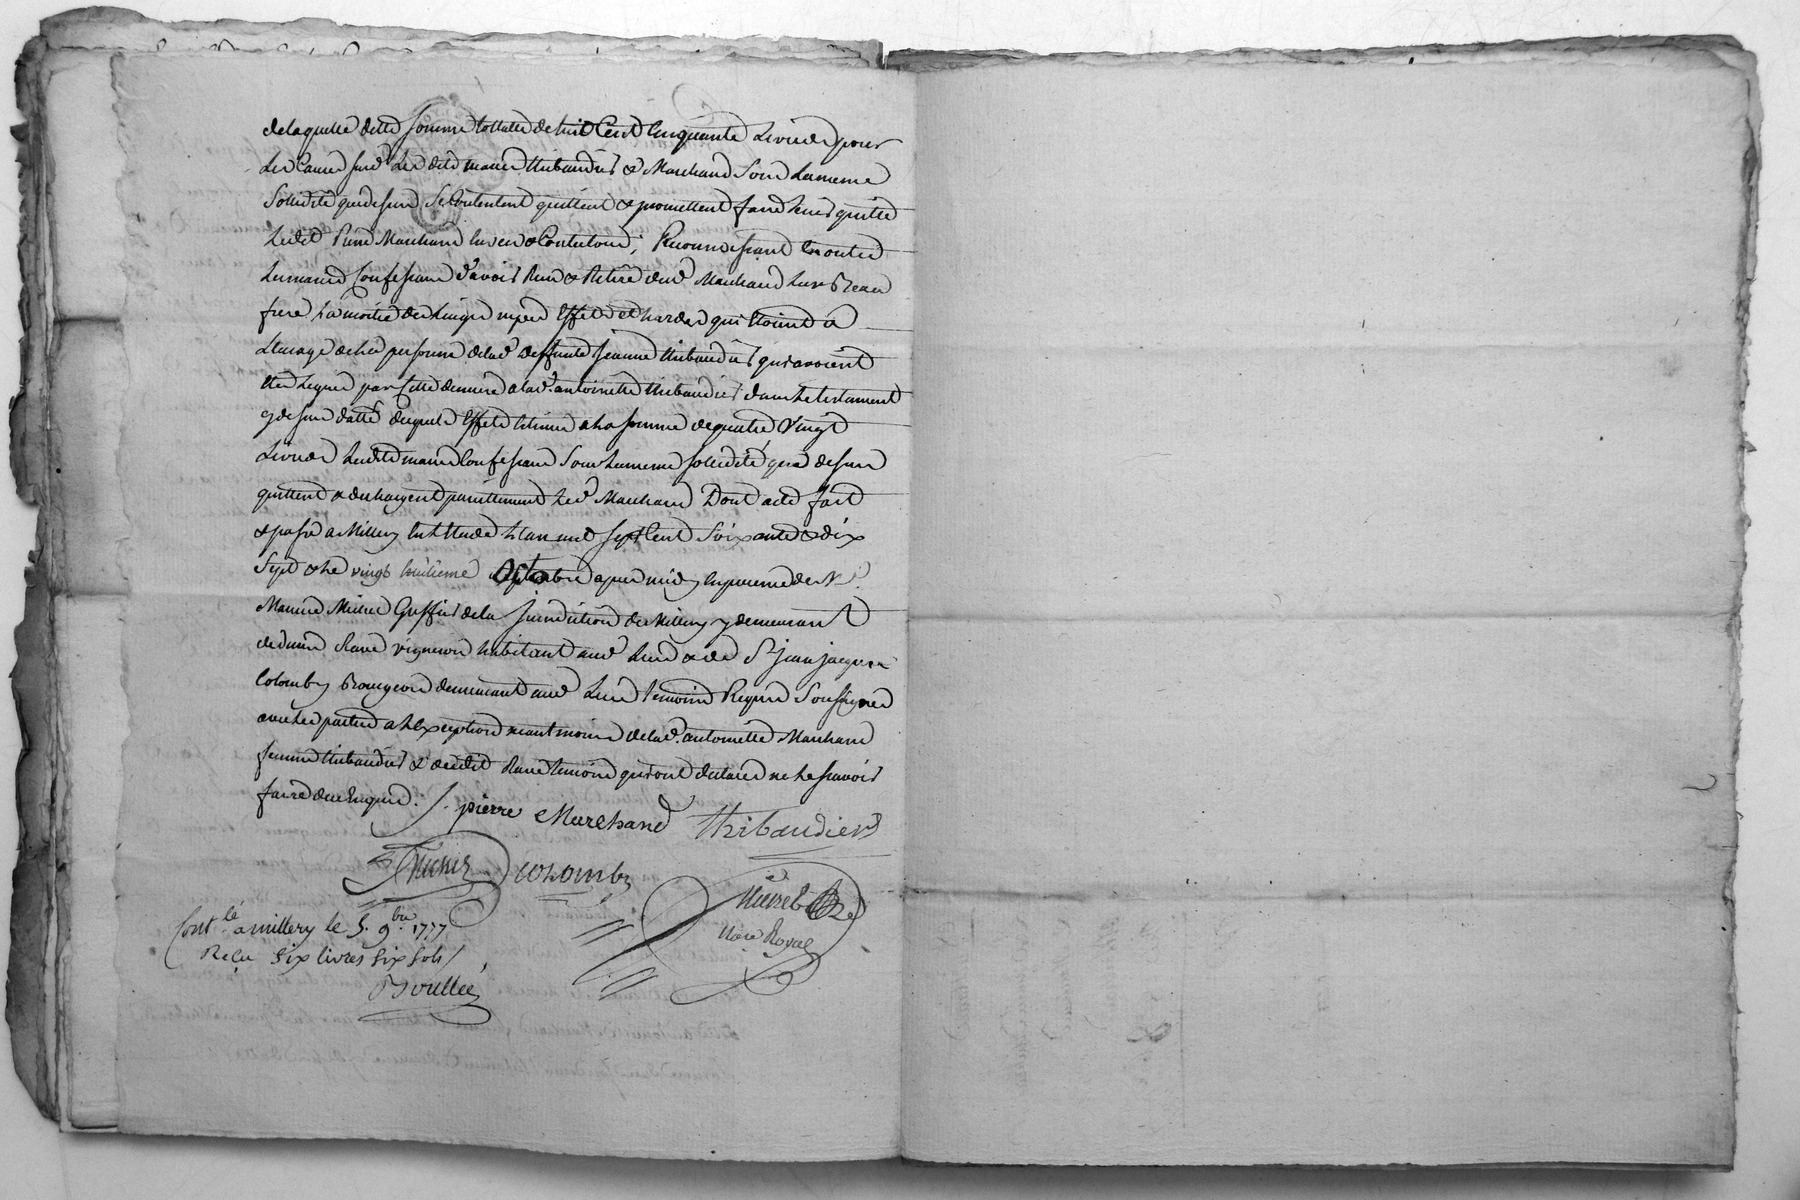 delaquelle ditte somme tottalle de huit Cent Cinquante Livres pour
Les Causes sus.d Les dits mariés thibaudier & Marchand sous Lameme
Sollidité que dessus Se Contentent quittent & promettent faire tenir quitte
Ledit Pierre Marchand
Lesmariés Confessant d'avoir Reçu & Retiré dud Marchand Leur Beau
frere La moitié des Linges nipes Effets et hardes qui Etoient a
Lusage de La personne delad deffunte Jeanne thibaudier qui avoient
Eté Legués par Cette derniere alad. antoinette thibaudier dans Le testament
cy dessus datté desquels Effets Estimés a La somme de quatre Vingt
Livres Lesdits mariés Confessant Sous Lameme sollidité que dessus
quittent & dechargent pareillement Led Marchand Dont acte fait
& passé a Millery En Etude L'an mil sept Cent Soixante & dix
Sept & Le vingt huitieme octobre apres midy En presence de
Maurice Greffier dela Jurisdiction de Millery y demeurant
Rave vigneron habitant aud Lieu & de Sr Jean Jacques
Colomby Bourgeois demeurant aud Lieu temoins Requis Soussignés
avec Les parties a L'exception neantmoins delad. antoinette Marchand
femme thibaudier & dudit Rave temoin qui ont declaré ne Le scavoir
faire de ce Enquis.
pierre Marchand thibaudier
Colomby
Nore Royal
Contlé a millery le 5. 9bre 1777
Reçu six livres six sols
Boullée